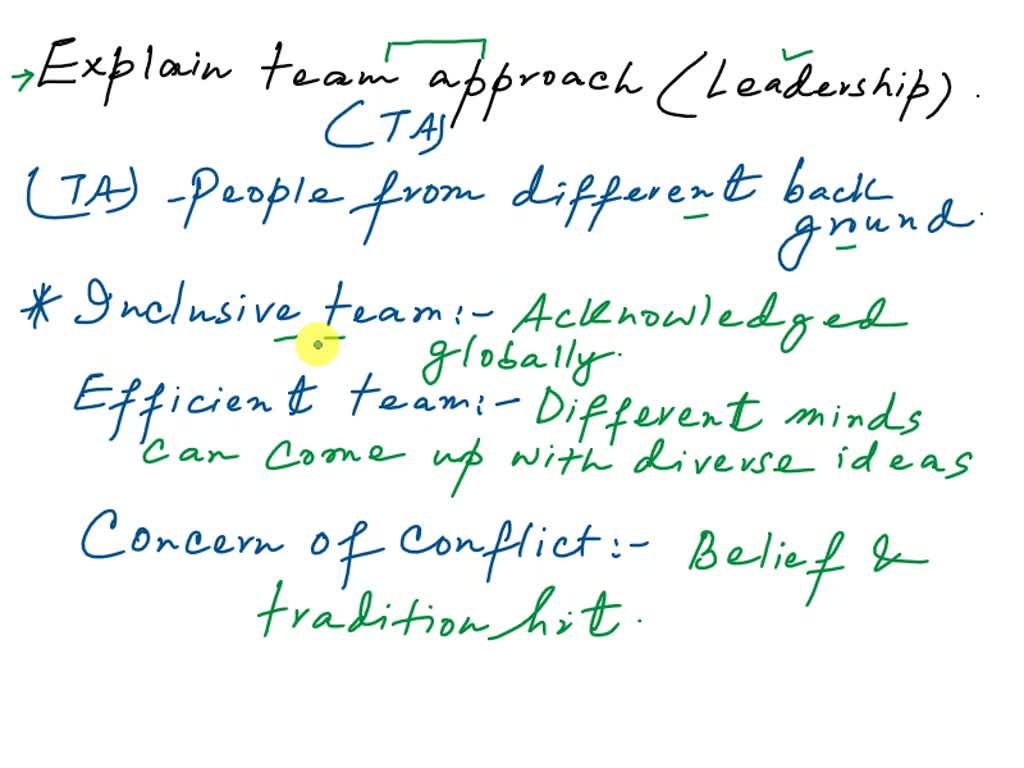 →Explain team approach (Leadership).
(TA)
(TA) -People from different back
ground.
* Inclusive team:- Acknowledged
globally.
Efficient team:- Different minds
can come up with diverse ideas
Concern of conflict:- Belief &
tradition hit.